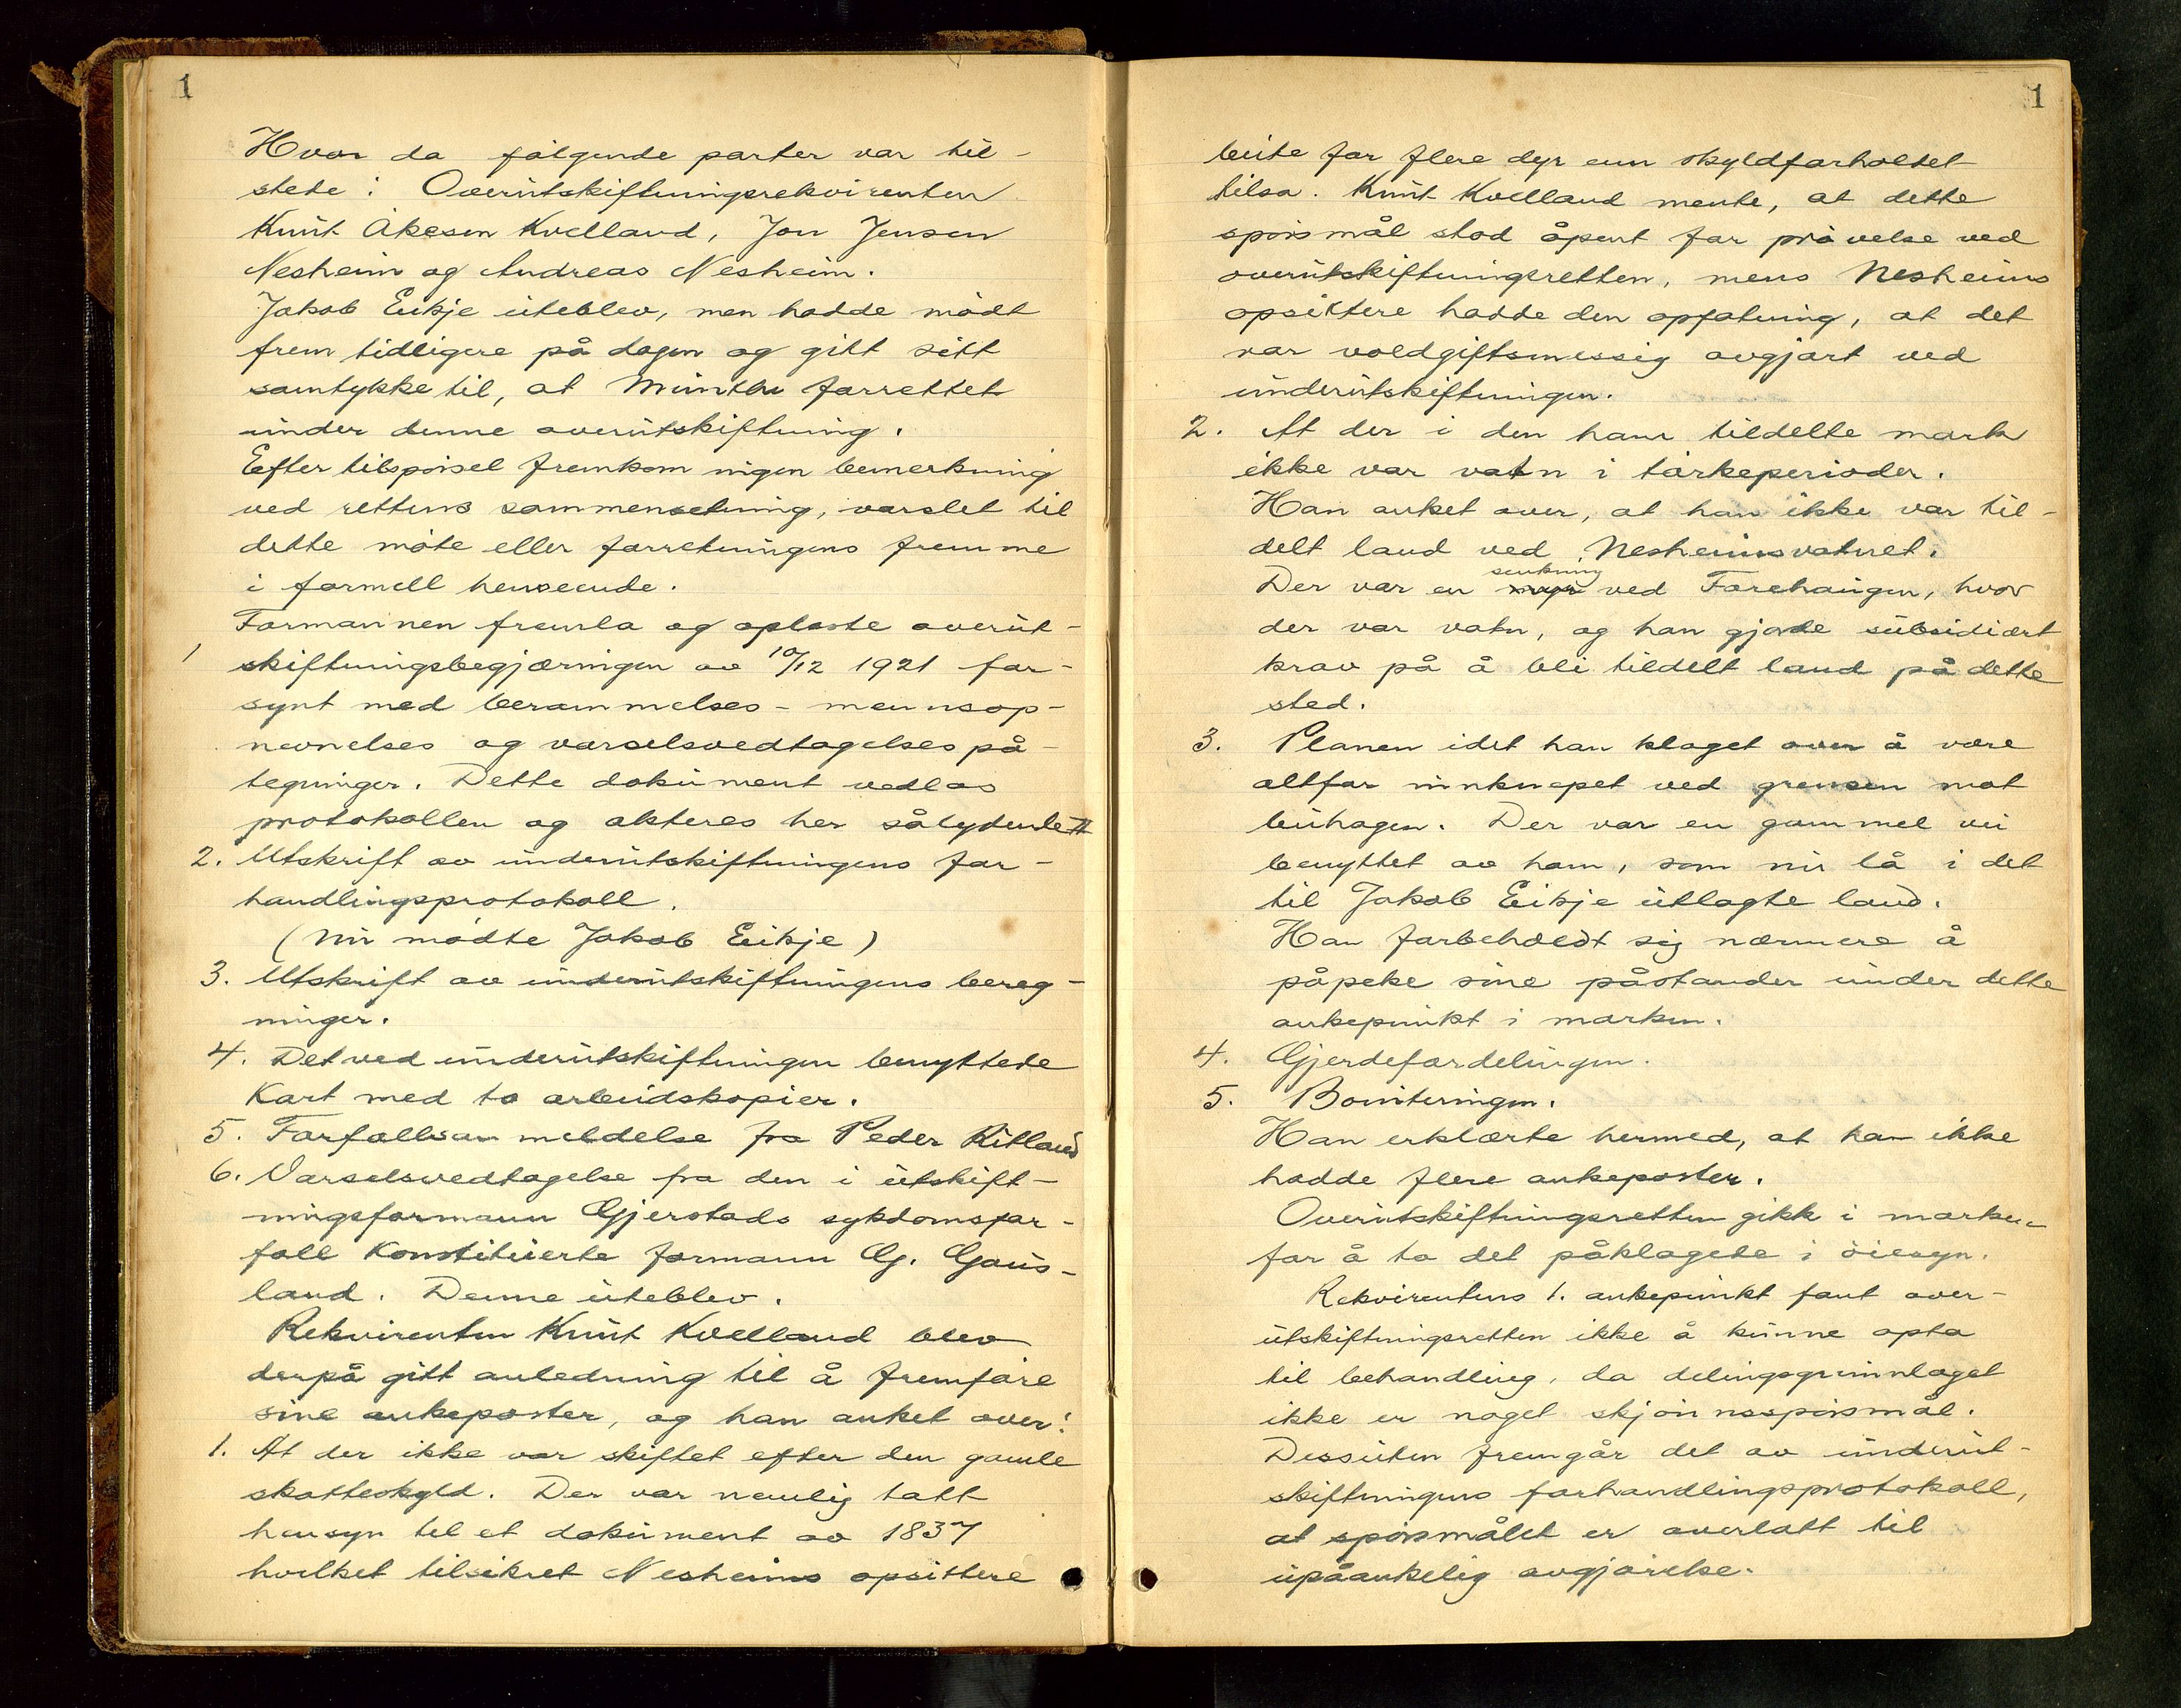 1
Hvor da følgende parter var til-
stede: Overutskiftningsrekvirenten
Knut Åkesen Kvelland, Jon Jensen
Nesheim og Andreas Nesheim.
Jakob Eikje uteblev, men hadde mødt
frem tidligere på dagen og gitt sitt
samtykke til, at Münther forrettet
under denne overutskiftning.
Eefter tilspørsel fremkom ingen bemerkning
ved rettens sammensetning, varslet til
dette møte eller forretningens fremme
i formell henseende.
Formannen fremla og opleste overut-
1 skiftningsbegjæringen av 10/12 1921 for-
synt med berammelses- mennsop-
nevnelses og varselsvedtagelses på-
tegninger. Dette dokument vedlas
protokollen og akteres her sålydende#
2. Utskrift av underutskiftningens for-
handlingsprotokoll.
(Nu mødte Jakob Eikje)
3. Utskrift av underutskiftningens bereg-
ninger.
4. Det ved underutskiftningen benyttede
Kart med to arbeidskopier.
5. Forfallsanmeldelse fra Peder Ritland
6. Varselsvedtagelse fra den i utskift-
ningsformann Gjerstads sykdomsfor-
fall Konstituerte formann G. Gaus-
land. Denne uteblev.
Rekvirenten Knut Kvelland blev
derpå gitt anledning til å fremføre
sine ankeposter, og han anket over:
1. At der ikke var skiftet efter den gamle
skatteskyld. Der var nemlig tatt
hensyn til et dokument av 1837
hvilket tilsikret Nesheims opsittere
1
beite for flere dyr enn skyldforholdet
tilsa. Knut Kvelland mente, at dette
spørsmål stod åpent for prøvelse ved
overutskiftningsretten, mens Nesheims
opsittere hadde den opfatning, at det
var voldgiftsmessig avgjort ved
underutskiftningen.
2. At der i den ham tildelte mark
ikke var vatn i tørkeperioder.
Han anket over, at han ikke var til-
delt land ved Nesheimsvatnet.
senkning
Der var en myr ved Forehaugen, hvor
der var vatn, og han gjorde subsidiært
krav på å bli tildelt land på dette
sted.
3. Planen idet han klaget over å være
altfor innknepet ved grensen mot
buhagen. Der var en gammel vei
benyttet av ham, som nu lå i det
til Jakob Eikje utlagte land.
Han forbeholdt sig nærmere å
påpeke sine påstander under dette
ankepunkt i marken.
4. Gjerdefordelingen.
5. Boniteringen.
Han erklærte hermed, at han ikke
hadde flere ankeposter.
Overutskiftningsretten gikk i marken
for å ta det påklagete i øiesyn.
Rekvirentens 1. ankepunkt fant over-
utskiftningsretten ikke å kunne opta
til behandling, da delingsgrunnlaget
ikke er noget skjønnsspørsmål.
Dessuten fremgår det av underut-
skiftningens forhandlingsprotokoll,
at spørsmålet er overlatt til
upåankelig avgjørelse.